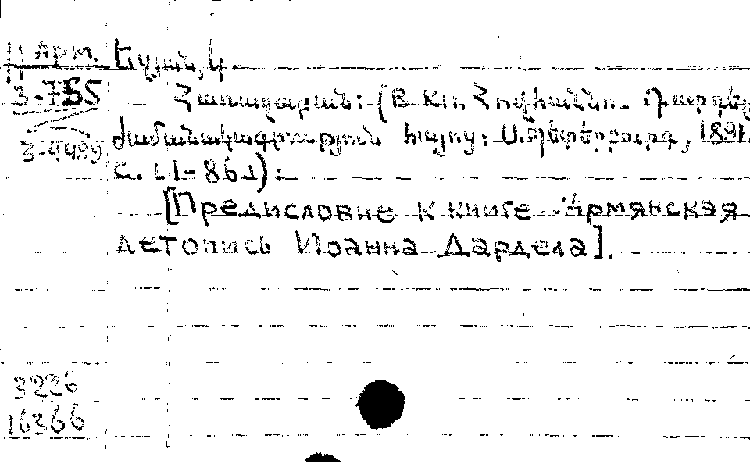 Арм. Եզյան, Կ.
3-755
Հառաջաբան: (В кн. Հովհաննու Դարդել
3-4499 ժամանակագրություն հայոց: Ս.Պետերբուրգ, 1891.
с. I-86):
[Предисловие к книге Армянская
летопись Иоанна Дардела].
3226
16366